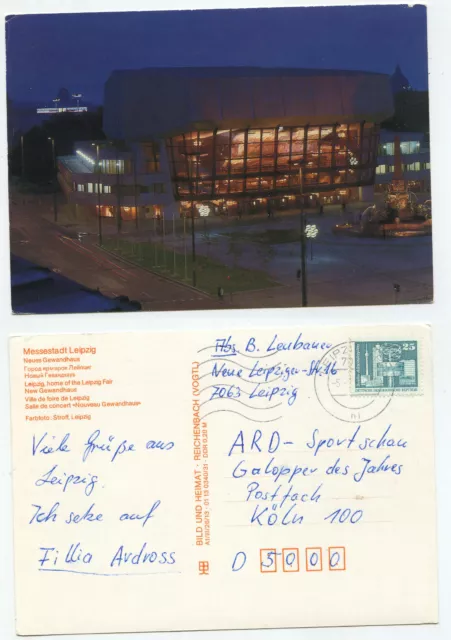 Messestadt Leipzig
Neues Gewandhaus
Город ярмарок Лейпциг
Новый Гевандхауз
Leipzig, home of the Leipzig Fair
New Gewandhaus
Ville de foire de Leipzig
Salle de concert «Nouveau Gewandhaus»
Farbfoto: Straft, Leipzig
Viele Grüße aus
Leipzig.
Ich setze auf
Fillia Ardross
BILD UND HEIMAT · REICHENBACH (VOGTL)
Abs. B. Leubauer
Neue Leipziger-Str. 16
7063 Leipzig
25
ARD-Sportschau
Galopper des Jahres
Postfach
Köln 100
D 5000